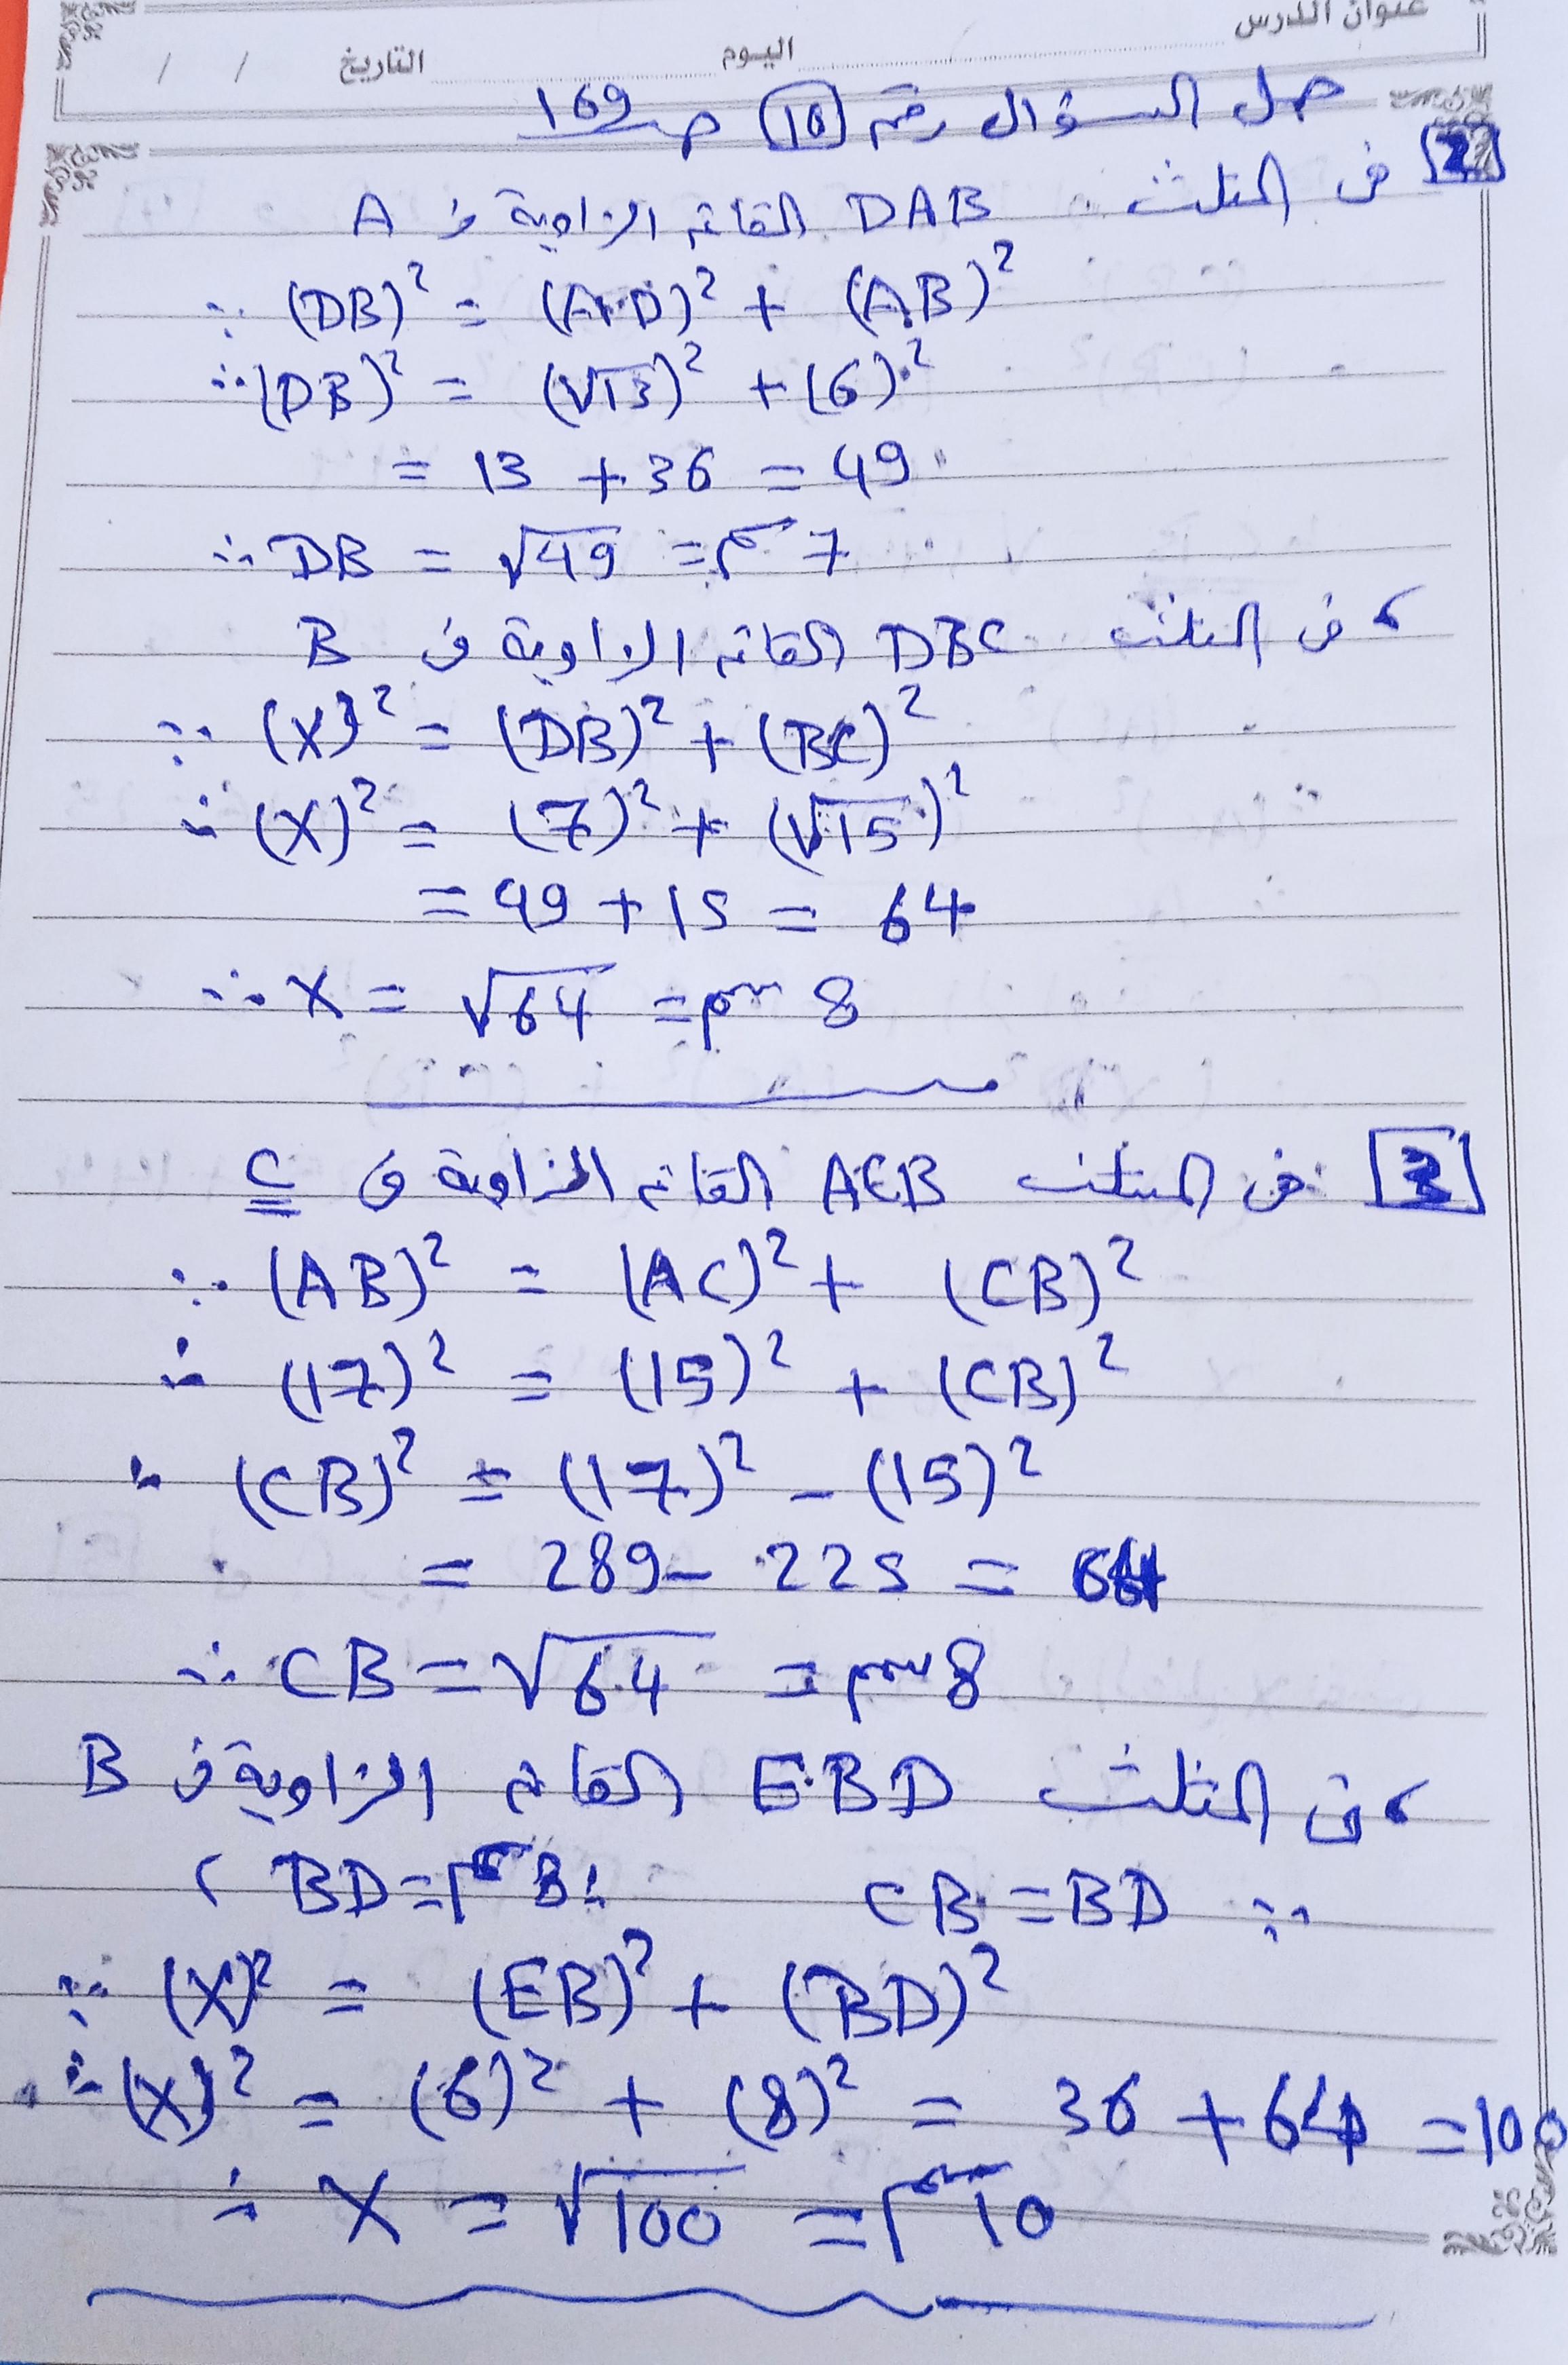 عنوان الدرس
اليوم التاريخ / /
حل السؤال رقم 10 ص 169
2 في المثلث DAB القائم الزاوية في A
∵ (DB)² = (AD)² + (AB)²
∴ (DB)² = (√13)² + (6)²
= 13 + 36 = 49
∴ DB = √49 = 7 سم
، في المثلث DBC القائم الزاوية في B
∵ (X)² = (DB)² + (BC)²
∴ (X)² = (7)² + (√15)²
= 49 + 15 = 64
∴ X = √64 = 8 سم
3 في المثلث ACB القائم الزاوية في C
∵ (AB)² = (AC)² + (CB)²
∴ (17)² = (15)² + (CB)²
∴ (CB)² = (17)² - (15)²
= 289 - 225 = 64
∴ CB = √64 = 8 سم
، في المثلث EBD القائم الزاوية في B
∵ CB = BD ∴ BD = 8 سم ،
∵ (X)² = (EB)² + (BD)²
∴ (X)² = (6)² + (8)² = 36 + 64 = 100
∴ X = √100 = 10 سم